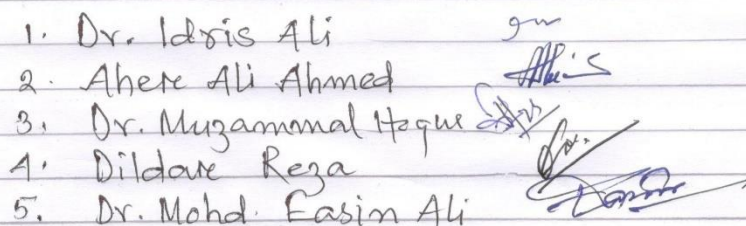 1. Dr. Idris Ali
2. Ahere Ali Ahmed
3. Dr. Muzammal Hoque
4. Dildare Reza
5. Dr. Mohd. Easin Ali